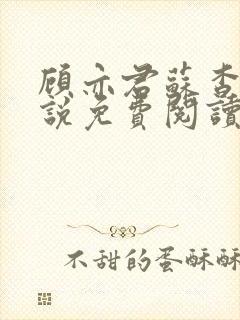 顾亦君蘇杳
說免費閱讀
不甜的蛋酥酥